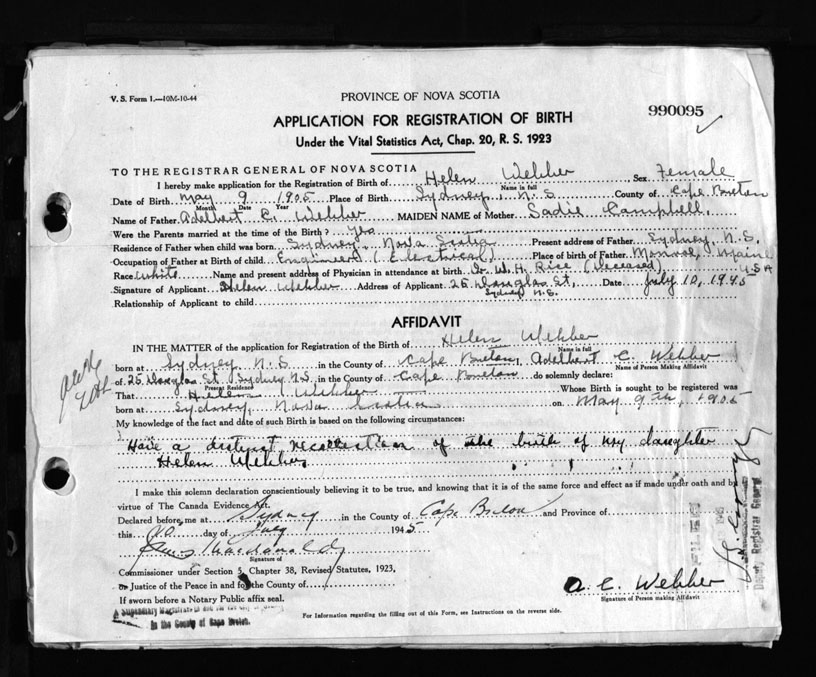 V. S. Form 1.—10M-10-44
PROVINCE OF NOVA SCOTIA
990095
APPLICATION FOR REGISTRATION OF BIRTH
Under the Vital Statistics Act, Chap. 20, R. S. 1923
TO THE REGISTRAR GENERAL OF NOVA SCOTIA
I hereby make application for the Registration of Birth of Helen Webber Sex Female
Name in full
Date of Birth May 9 1905 Place of Birth Sydney, N.S. County of Cape Breton
Month Date Year
Name of Father Adelbert C. Webber MAIDEN NAME of Mother Sadie Campbell.
Were the Parents married at the time of the Birth? Yes
Residence of Father when child was born Sydney, Nova Scotia Present address of Father Sydney, N.S.
Occupation of Father at Birth of child Engineer (Electrical) Place of birth of Father Monroe, Maine
Race White Name and present address of Physician in attendance at birth Dr. W. H. Rice (Deceased) USA
Signature of Applicant Helen Webber Address of Applicant 25 Douglas St, Date July 10, 1945
Sydney N.S.
Relationship of Applicant to child
AFFIDAVIT
IN THE MATTER of the application for Registration of the Birth of Helen Webber
Name in full
born at Sydney N.S. in the County of Cape Breton, Adelbert C. Webber
Name of Person Making Affidavit
of 25 Douglas St Sydney N.S. in the County of Cape Breton do solemnly declare:
Present Residence
That Helen Webber Whose Birth is sought to be registered was
born at Sydney, Nova Scotia on May 9th, 1905
My knowledge of the fact and date of such Birth is based on the following circumstances:
Have a distinct recollection of the birth of my daughter
Helen Webber
I make this solemn declaration conscientiously believing it to be true, and knowing that it is of the same force and effect as if made under oath and by
virtue of The Canada Evidence Act.
Declared before me at Sydney in the County of Cape Breton and Province of
this 10 day of July 1945
Signature of
Commissioner under Section 5, Chapter 38, Revised Statutes, 1923,
or Justice of the Peace in and for the County of
If sworn before a Notary Public affix seal.
A. C. Webber
Signature of Person making Affidavit
A Stipendiary Magistrate in and for the City of Sydney
in the County of Cape Breton.
For Information regarding the filling out of this Form, see Instructions on the reverse side.
FILED
Deputy Registrar General